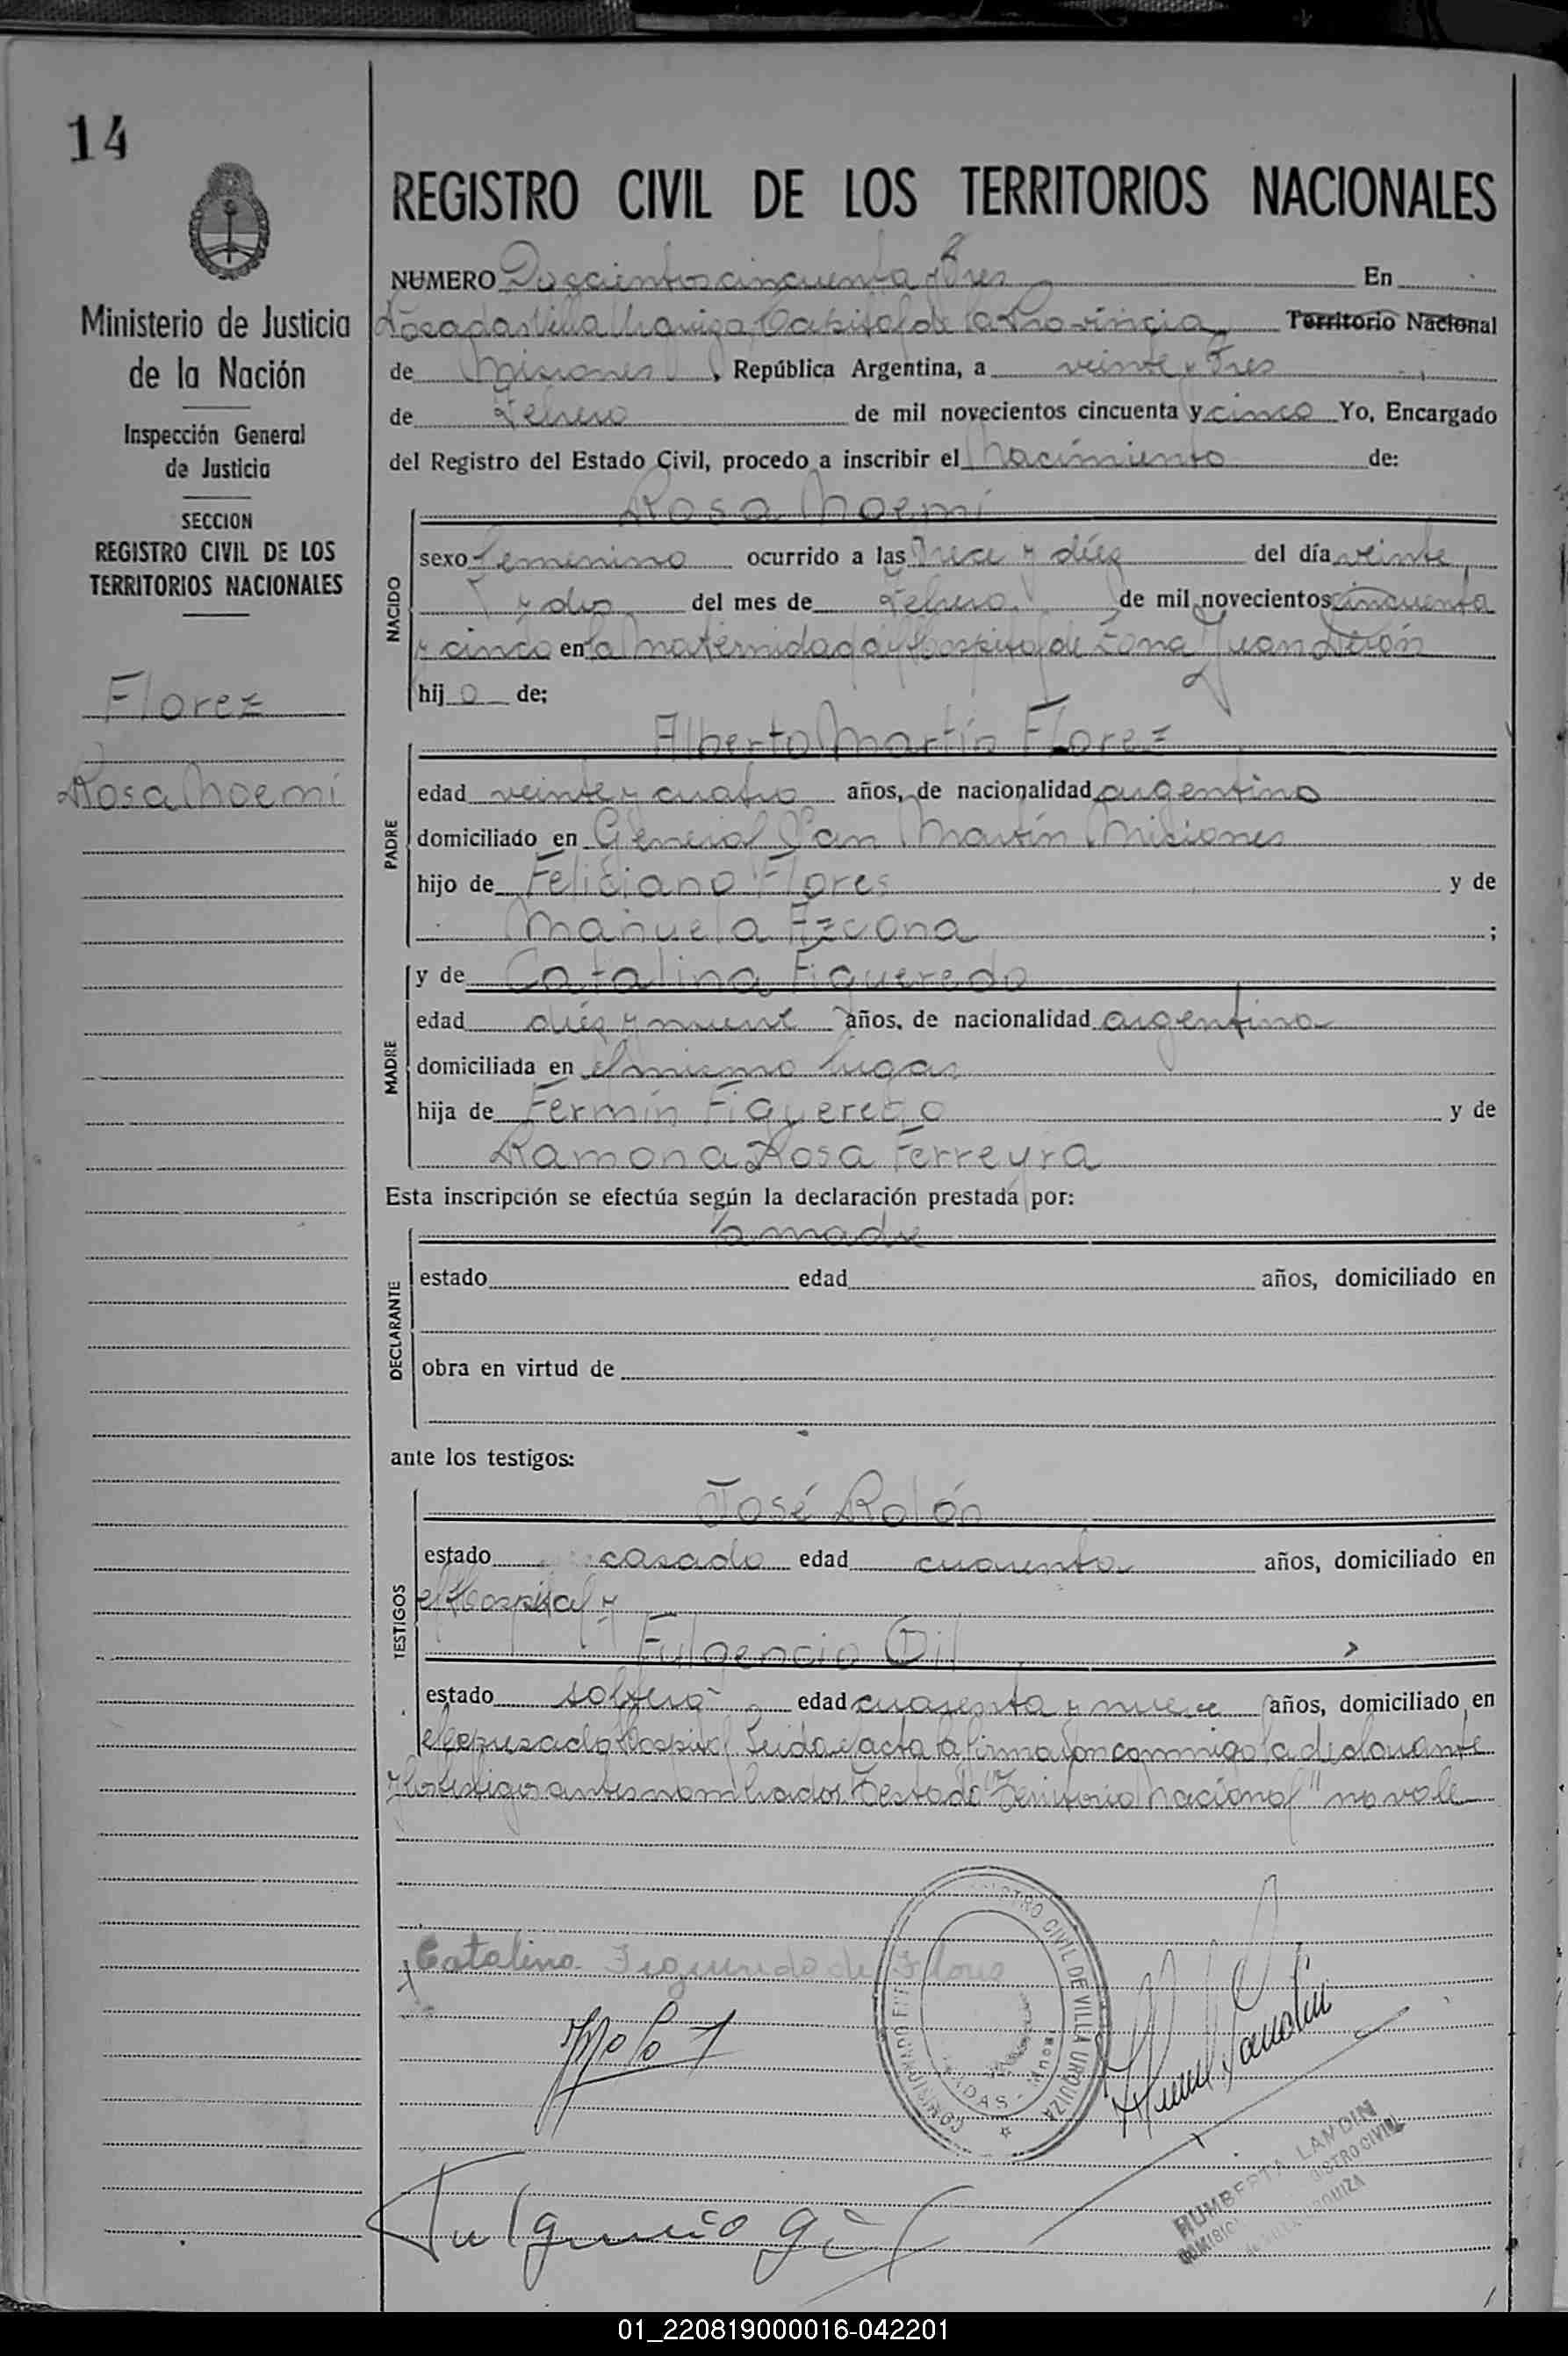 14
REGISTRO CIVIL DE LOS TERRITORIOS NACIONALES
Ministerio de Justicia
de la Nación
Inspección General
de Justicia
SECCION
REGISTRO CIVIL DE LOS
TERRITORIOS NACIONALES
Florez
Rosa Noemí
NUMERO Doscientos cincuenta y Tres En
Posadas Villa Urquiza, Capital de la Provincia Territorio Nacional
de Misiones, República Argentina, a veinte y Tres
de Febrero de mil novecientos cincuenta y cinco Yo, Encargado
del Registro del Estado Civil, procedo a inscribir el Nacimiento de:
Rosa Noemí
NACIDO
sexo femenino ocurrido a las Trece y diez del día veinte
y dos del mes de Febrero de mil novecientos cincuenta
y cinco en la Maternidad del Hospital de Zona Juan Perón
hij a de;
PADRE
Alberto Martín Florez
edad veinte y cuatro años, de nacionalidad argentino
domiciliado en General San Martín Misiones
hijo de Feliciano Flores y de
Manuela Azcona ;
MADRE
y de Catalina Figueredo
edad diez y nueve años, de nacionalidad argentina
domiciliada en el mismo lugar
hija de Fermín Figueredo y de
Ramona Rosa Ferreyra
Esta inscripción se efectúa según la declaración prestada por:
DECLARANTE
la madre
estado edad años, domiciliado en
obra en virtud de
ante los testigos:
TESTIGOS
José Rolón
estado casado edad cuarenta años, domiciliado en
el Hospital y
Fulgencio Gil
estado soltero edad cuarenta y nueve años, domiciliado en
el expresado Hospital Leida el acta la firman conmigo la declarante
y los testigos antes nombrados Testado "Territorio Nacional" no vale
Catalina Figueredo de Flores
REGISTRO CIVIL DE VILLA URQUIZA
Fulgencio Gil
HUMBERTA LANDIN
REGISTRO CIVIL
URQUIZA
01_220819000016-042201